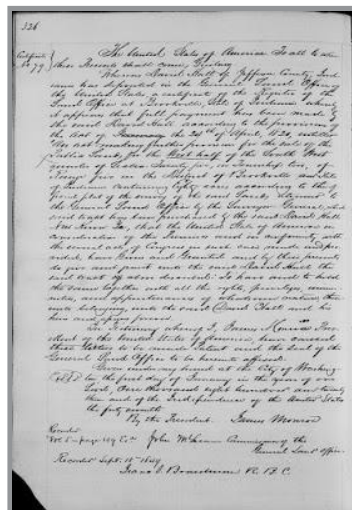 326
Certificate
No 79
The United States of America To all to whom
these Presents shall come, Greeting
Whereas David Hall of Jefferson County, Indi
ana has deposited in the General Land Office of
the United States, a certificate of the Register of the
Land Office at Brookville, State of Indiana whereby
it appears that full payment has been made by
the said David Hall according to the provisions
of the Act of the 24th of April, 1820, entitled
"An act making further provision for the sale of the
Public Lands," for the West half of the South West
quarter of Section Twenty in Township of
Range five in the District of Brookville and State
of Indiana containing eighty acres according to the of
ficial plat of the survey of the said Lands returned to
the General Land Office by the Surveyor General, which
said tract has been purchased by the said David Hall
Now Know Ye, that the United States of America in
consideration of the Premises and in conformity with
the several acts of Congress in such case made and pro
vided, have Given and Granted and by these presents
do give and grant unto the said David Hall the
said tract above described: To have and to hold
the same together with all the rights, privileges, immu
nities, and appurtenances of whatsoever nature, there
unto belonging, unto the said David Hall and his
heirs and assigns forever.
In Testimony whereof I, James Monroe Pres
ident of the United States of America, have caused
these Letters to be made Patent and the Seal of the
General Land Office to be hereunto affixed.
Given under my hand at the City of Washing
ton the first day of January in the year of our
Lord, One thousand eight hundred and twenty
two and of the Independence of the United States
the forty sixth
By the President. James Monroe
Recorded
Vol 5 - page John McLean Commissioner of the
General Land Office.
Recorded Sept. 15th
R. B. C.